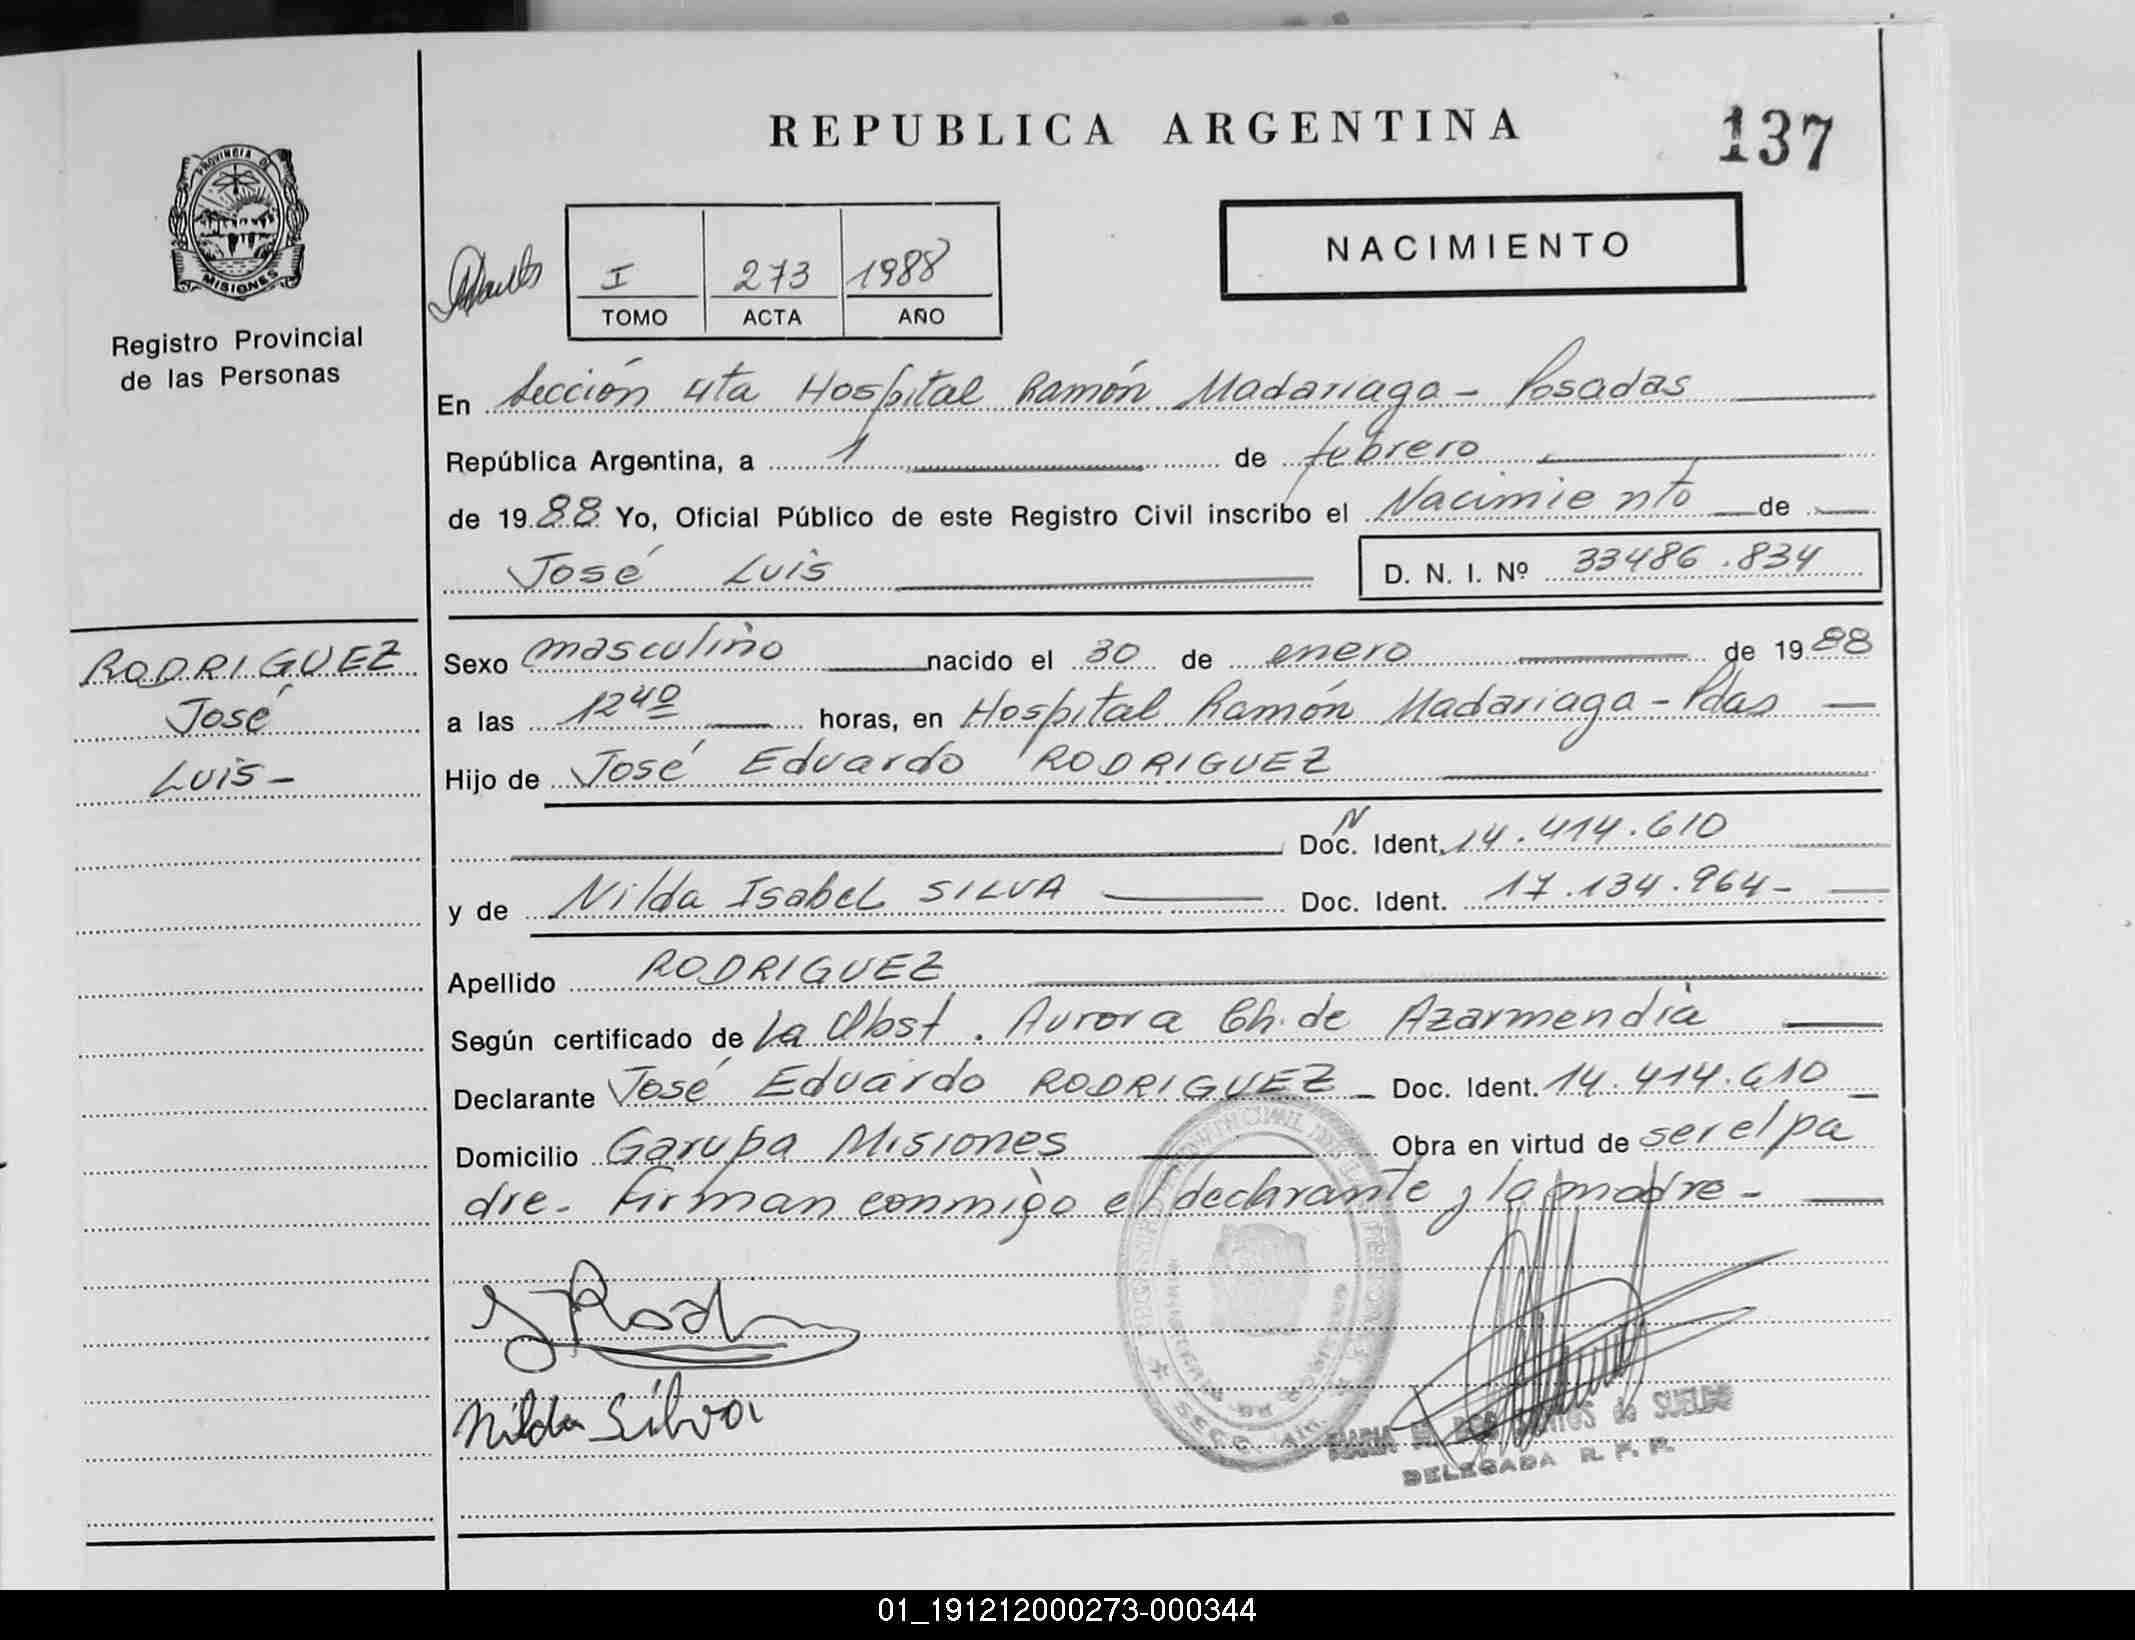 REPUBLICA ARGENTINA
137
PROVINCIA DE
MISIONES
Registro Provincial
de las Personas
NACIMIENTO
I 273 1988
TOMO ACTA AÑO
En Sección 4ta Hospital Ramón Madariaga - Posadas
República Argentina, a 1 de febrero
de 1988 Yo, Oficial Público de este Registro Civil inscribo el Nacimiento de
José Luis D. N. I. Nº 33486.834
RODRIGUEZ
José
Luis-
Sexo masculino nacido el 30 de enero de 1988
a las 12 40 horas, en Hospital Ramón Madariaga - Pdas
Hijo de José Eduardo RODRIGUEZ
N
Doc. Ident. 14.414.610
y de Nilda Isabel SILVA Doc. Ident. 17.134.964-
Apellido RODRIGUEZ
Según certificado de la Obst. Aurora Ch. de Azarmendia
Declarante José Eduardo RODRIGUEZ Doc. Ident. 14.414.610
Domicilio Garupa Misiones Obra en virtud de ser el pa
dre. Firman conmigo el declarante y la madre-
Nilda Silva
de SUELDO
DELEGADA R. P. P.
01_191212000273-000344